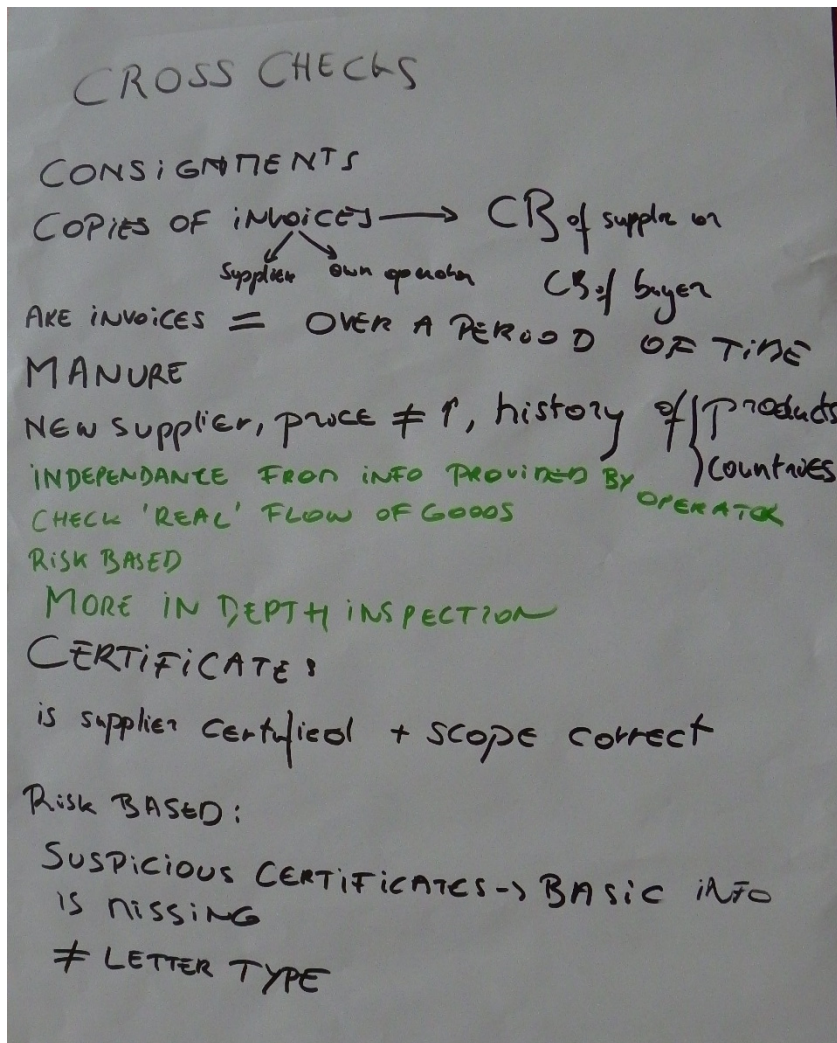 CROSS CHECKS
CONSIGNMENTS
COPIES OF INVOICES → CB of supplier or
Supplier own operator CB of buyer
ARE INVOICES = OVER A PERIOD OF TIME
MANURE
NEW SUPPLIER, price ≠ ↑, history of products
countries
INDEPENDANCE FROM INFO PROVIDED BY OPERATOR
CHECK 'REAL' FLOW OF GOODS
RISK BASED
MORE IN DEPTH INSPECTION
CERTIFICATE:
is supplier certified + scope correct
RISK BASED:
SUSPICIOUS CERTIFICATES -> BASIC INFO
IS MISSING
≠ LETTER TYPE